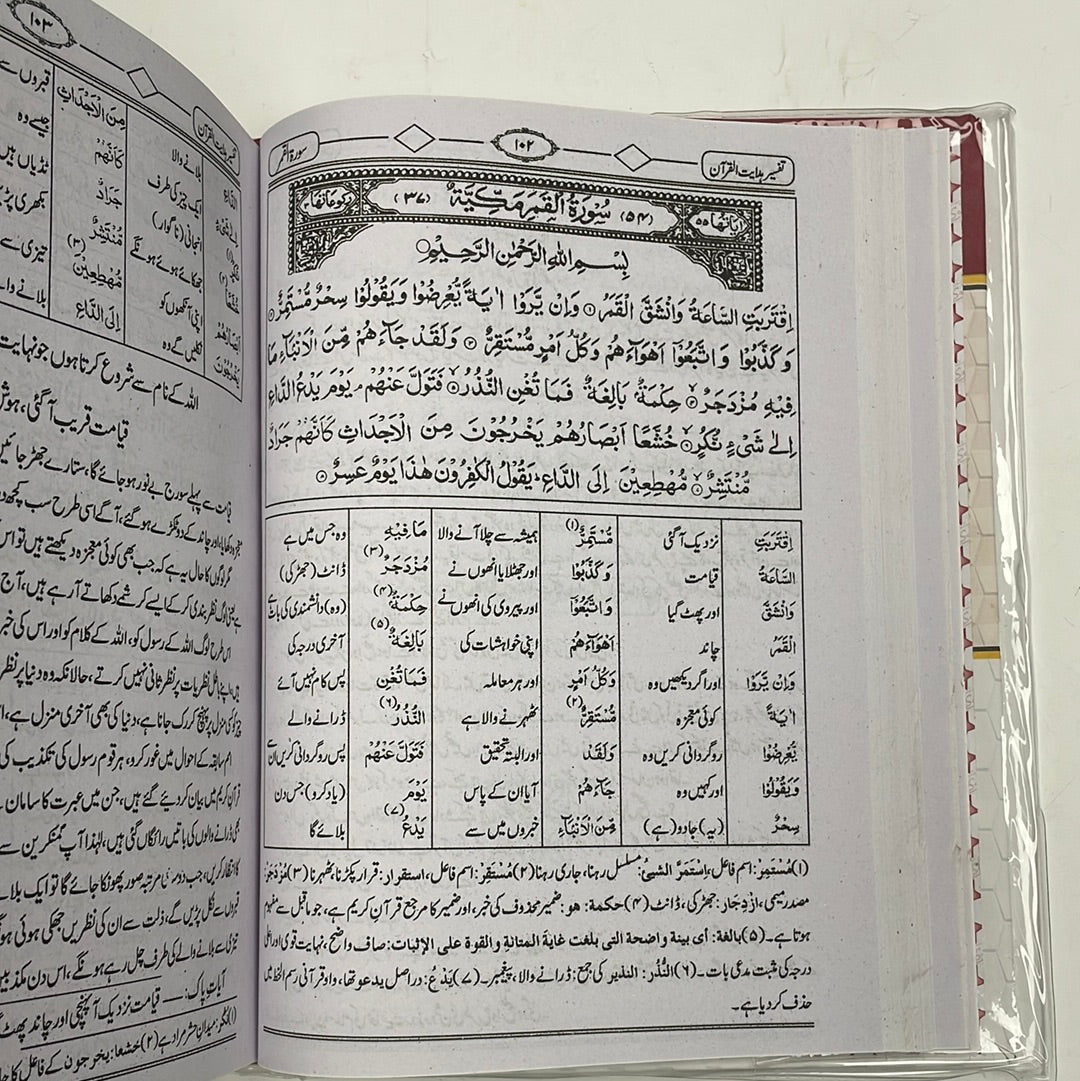 تفسیر ہدایت القرآن
۱۰۲
سورۃ القمر
اٰیاتہا ۵۵
(۵۴) سُوْرَۃُ الْقَمَرِ مَکِّیَّۃٌ (۳۷)
رکوعاتہا ۳
بِسْمِ اللّٰہِ الرَّحْمٰنِ الرَّحِیْمِ
اِقْتَرَبَتِ السَّاعَۃُ وَانْشَقَّ الْقَمَرُ ۱ وَاِنْ یَّرَوْا اٰیَۃً یُّعْرِضُوْا وَیَقُوْلُوْا سِحْرٌ مُّسْتَمِرٌّ ۲
وَکَذَّبُوْا وَاتَّبَعُوْۤا اَہْوَآءَہُمْ وَکُلُّ اَمْرٍ مُّسْتَقِرٌّ ۳ وَلَقَدْ جَآءَہُمْ مِّنَ الْاَنْبَآءِ مَا
فِیْہِ مُزْدَجَرٌ ۴ حِکْمَۃٌۢ بَالِغَۃٌ فَمَا تُغْنِ النُّذُرُ ۵ فَتَوَلَّ عَنْہُمْ ۘ یَوْمَ یَدْعُ الدَّاعِ
اِلٰی شَیْءٍ نُّکُرٍ ۶ خُشَّعًا اَبْصَارُہُمْ یَخْرُجُوْنَ مِنَ الْاَجْدَاثِ کَاَنَّہُمْ جَرَادٌ
مُّنْتَشِرٌ ۷ مُّہْطِعِیْنَ اِلَی الدَّاعِ ؕ یَقُوْلُ الْکٰفِرُوْنَ ہٰذَا یَوْمٌ عَسِرٌ ۸
اِقْتَرَبَتِ نزدیک آگئی مُّسْتَمِرٌّ(۱) ہمیشہ سے چلا آنے والا مَا فِیْہِ وہ جس میں ہے
السَّاعَۃُ قیامت وَکَذَّبُوْا اور جھٹلایا انھوں نے مُزْدَجَرٌ(۳) ڈانٹ (جھڑکی)
وَانْشَقَّ اور پھٹ گیا وَاتَّبَعُوْۤا اور پیروی کی انھوں نے حِکْمَۃٌۢ(۴) (وہ) دانشمندی کی بات ہے
الْقَمَرُ چاند اَہْوَآءَہُمْ اپنی خواہشات کی بَالِغَۃٌ(۵) آخری درجہ کی
وَاِنْ یَّرَوْا اور اگر دیکھیں وہ وَکُلُّ اَمْرٍ اور ہر معاملہ فَمَا تُغْنِ پس کام نہیں آئے
اٰیَۃً کوئی معجزہ مُّسْتَقِرٌّ(۲) ٹھہرنے والا ہے النُّذُرُ(۶) ڈرانے والے
یُّعْرِضُوْا روگردانی کریں وہ وَلَقَدْ اور البتہ تحقیق فَتَوَلَّ عَنْہُمْ پس روگردانی کریں ان سے
وَیَقُوْلُوْا اور کہیں وہ جَآءَہُمْ آیا ان کے پاس یَوْمَ (یاد کرو) جس دن
سِحْرٌ (یہ) جادو (ہے) مِّنَ الْاَنْبَآءِ خبروں میں سے یَدْعُ(۷) بلائے گا
(۱) مُسْتَمِرّ: اسم فاعل، اسْتَمَرَّ الشیئُ: مسلسل رہنا، جاری رہنا (۲) مُسْتَقِرّ: اسم فاعل، استقرار: قرار پکڑنا، ٹھہرنا (۳) مُزْدَجَرٌ:
مصدر میمی، ازْدِجَار: جھڑکی، ڈانٹ (۴) حکمة: ھو: ضمیر محذوف کی خبر، اور ضمیر کا مرجع قرآنِ کریم ہے، جو ماقبل سے مفہوم
ہوتا ہے۔ (۵) بالغة: أی بینة واضحة التی بلغت غایة المتانة والقوة علی الإثبات: صاف واضح، نہایت قوی اور اعلی
درجہ کی مثبت مدعی بات۔ (۶) النُّذُر: النذیر کی جمع: ڈرانے والا، پیغمبر۔ (۷) یَدْعُ: دراصل یدعو تھا، واو قرآنی رسم الخط میں
حذف کردیا ہے۔
۱۰۳
تفسیر ہدایت القرآن
الدَّاعِ بلانے والا مِنَ الْاَجْدَاثِ قبروں سے
اِلٰی شَیْءٍ ایک چیز کی طرف کَاَنَّہُمْ جیسے وہ
نُّکُرٍ(۱) انجانی (ناگوار) جَرَادٌ ٹڈیاں ہیں
خُشَّعًا(۲) جھکائے ہوئے ہونگے مُّنْتَشِرٌ
اَبْصَارُہُمْ اپنی آنکھوں کو مُّہْطِعِیْنَ(۳) تیزی سے
یَخْرُجُوْنَ نکلیں گے وہ اِلَی الدَّاعِ بلانے والے
اللہ کے نام سے شروع کرتا ہوں جو نہایت
قیامت قریب آگئی، ہوش
قیامت سے پہلے سورج بے نور ہوجائے گا، ستارے جھڑ جائیں
معجزہ دکھایا، اور چاند کے دو ٹکڑے ہوگئے، آگے اسی طرح سب کچھ
مگر لوگوں کا حال یہ ہے کہ جب بھی کوئی معجزہ دیکھتے ہیں تو اس
لوگ نظر بندی کرکے ایسے کرشمے دکھاتے آرہے ہیں، آج
اس طرح لوگ اللہ کے رسول کو، اللہ کے کلام کو اور اس کی خبر
نظریات پر نظر ثانی نہیں کرتے، حالانکہ وہ دنیا پر نظر
منزل پر پہنچ کر رک جانا ہے، دنیا کی بھی آخری منزل ہے،
امم سابقہ کے احوال میں غور کرو، ہر قوم رسول کی تکذیب کی
قرآنِ کریم میں بیان کردیئے گئے ہیں، جن میں عبرت کا سامان
ڈرانے والوں کی باتیں رائگاں گئی ہیں، لہٰذا آپ منکرین سے
کا انتظار کریں، جب دوسری مرتبہ صور پھونکا جائے گا تو ایک بلانے
قبروں سے نکل پڑیں گے، ذلت سے ان کی نظریں جھکی ہوئی
تیزی سے بلانے والے کی طرف چل رہے ہونگے، اس دن
آیاتِ پاک: — قیامت نزدیک آپہنچی اور چاند پھٹ
(۱) نُکُر: میدانِ حشر مراد ہے (۲) خشعا: یخرجون کے فاعل کا